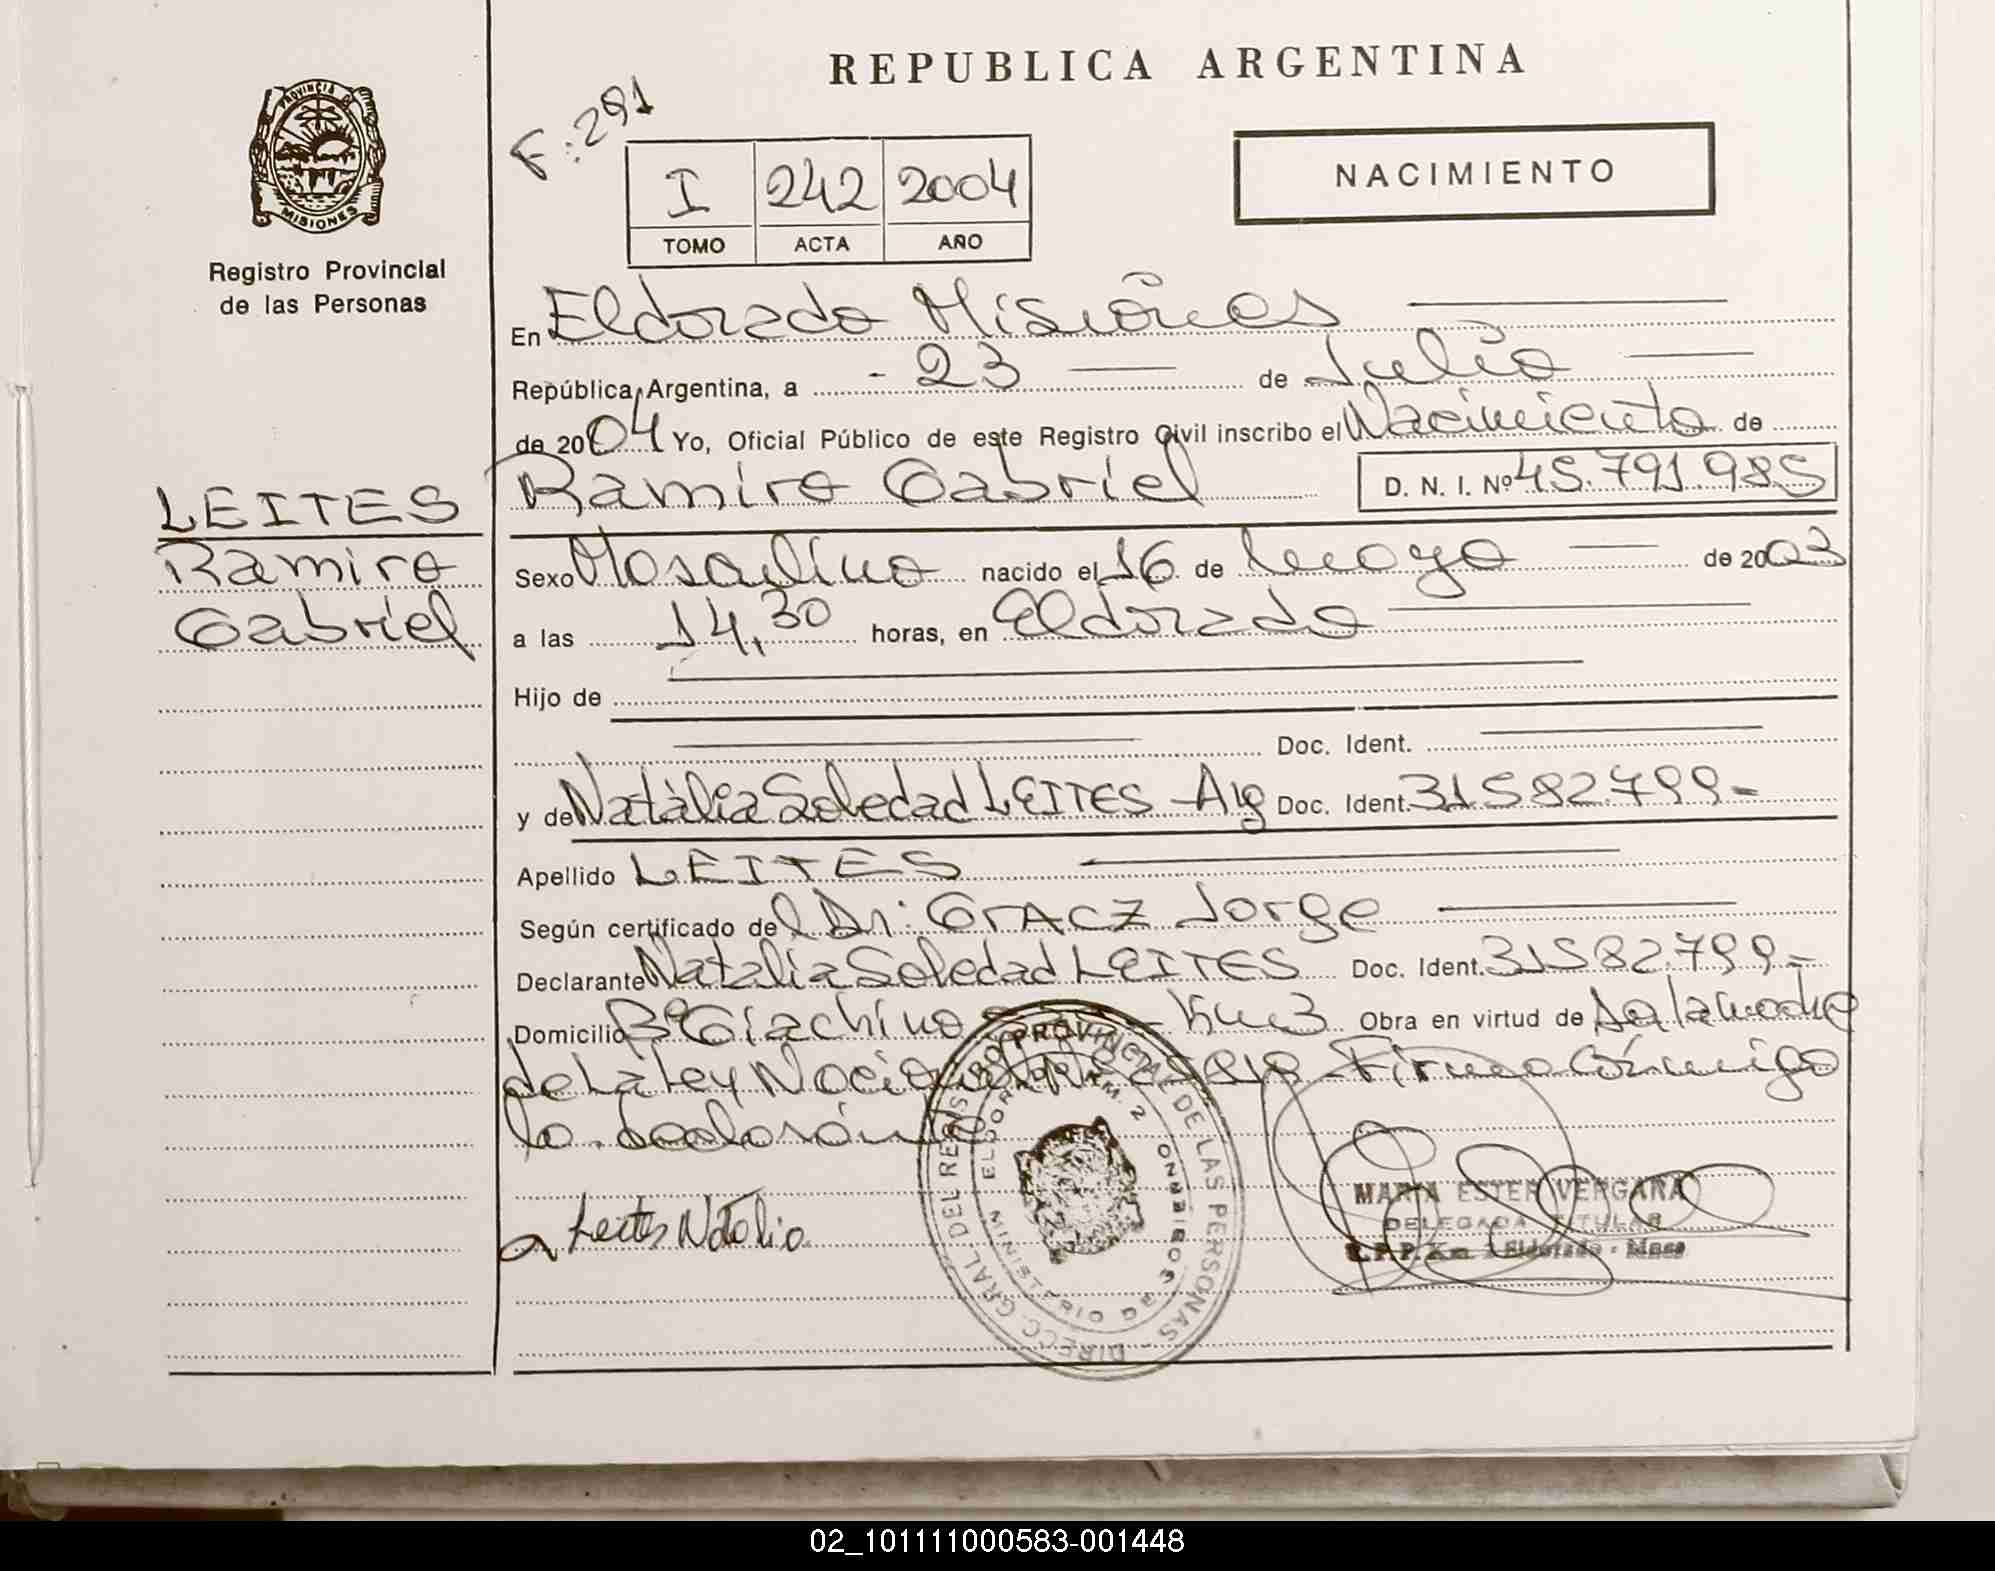 REPUBLICA ARGENTINA
PROVINCIA DE MISIONES
Registro Provincial
de las Personas
F: 291
I 242 2004
TOMO ACTA AÑO
NACIMIENTO
En Eldorado Misiones
República Argentina, a - 23 de Julio
de 2004 Yo, Oficial Público de este Registro Civil inscribo el Nacimiento de
Ramiro Gabriel D. N. I. Nº 45.791.985
LEITES
Ramiro
Gabriel
Sexo Masculino nacido el 16 de mayo de 2003
a las 14,30 horas, en Eldorado
Hijo de
Doc. Ident.
y de Natalia Soledad LEITES - Arg Doc. Ident. 31582.799-
Apellido LEITES
Según certificado del Dr: GRACZ Jorge
Declarante Natalia Soledad LEITES Doc. Ident. 31582.799.=
Domicilio Bº Giachino - Km 3 Obra en virtud de
de La Ley Firma Conmigo
la declarante
Leites Natalia
DIRECC. GRAL. DEL REGISTRO PROVINCIAL DE LAS PERSONAS
ELDORADO KM. 2
MINISTERIO DE GOBIERNO
MARIA ESTER VERGARA
DELEGADA TITULAR
R.P.P. Km 2 Eldorado - Mnes
02_101111000583-001448